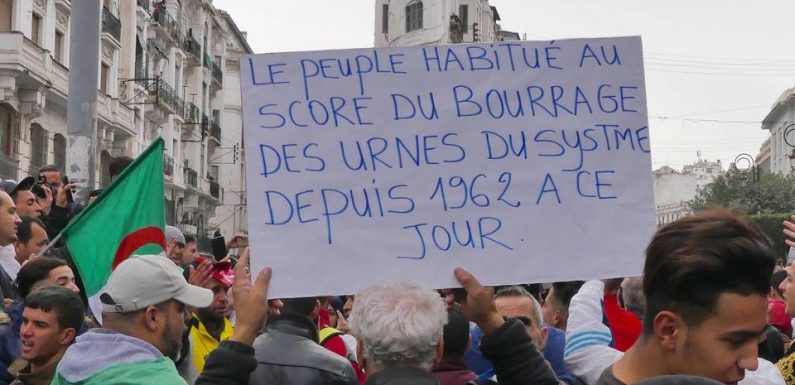 LE PEUPLE HABITUÉ AU
SCORE DU BOURRAGE
DES URNES DU SYSTME
DEPUIS 1962 A CE
JOUR.